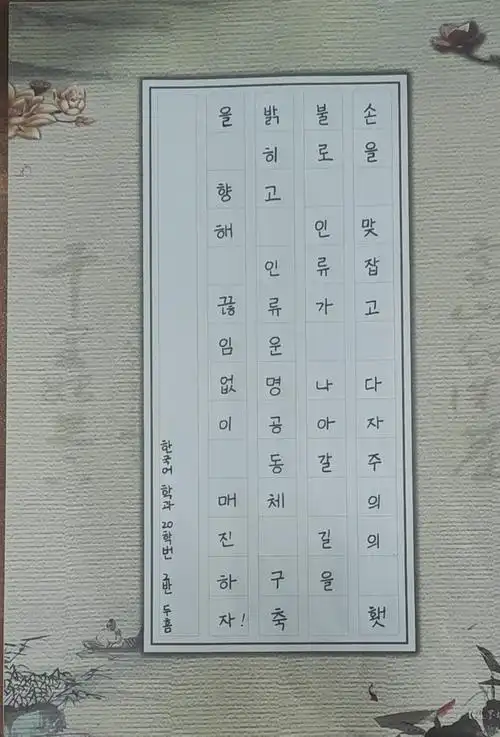 손을 맞잡고 다자주의의 횃
불로 인류가 나아갈 길을
밝히고 인류운명공동체 구축
을 향해 끊임없이 매진하자!
한국어 학과 20학번 2반 두흠